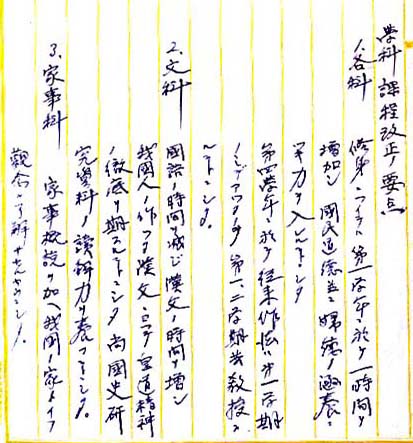 學科課程改正ノ要点
1、各科
修身ニツキテハ第一学年ニ於テ一時間ヲ
増加シ國民道徳並ニ婦徳ノ涵養ニ
一層力ヲ入レルコトニシタ
第四学年ニ於テ従来作法ハ第一学期
ノミデアツタノヲ第一、二学期共教授スル
コトニシタ。
2、文科
國語ノ時間ヲ減ジ漢文ノ時間ヲ増シ
我國人ノ作ツタ漢文ニヨツテ皇道精神
ノ徹底ヲ期スルコトニシタ 尚國史研
究資料ノ讀解力ヲ養フコトニシタ。
3、家事科
家事概説ヲ加ヘ我國ノ家トイフ
観念ヲ了解サセルコトニシタ。